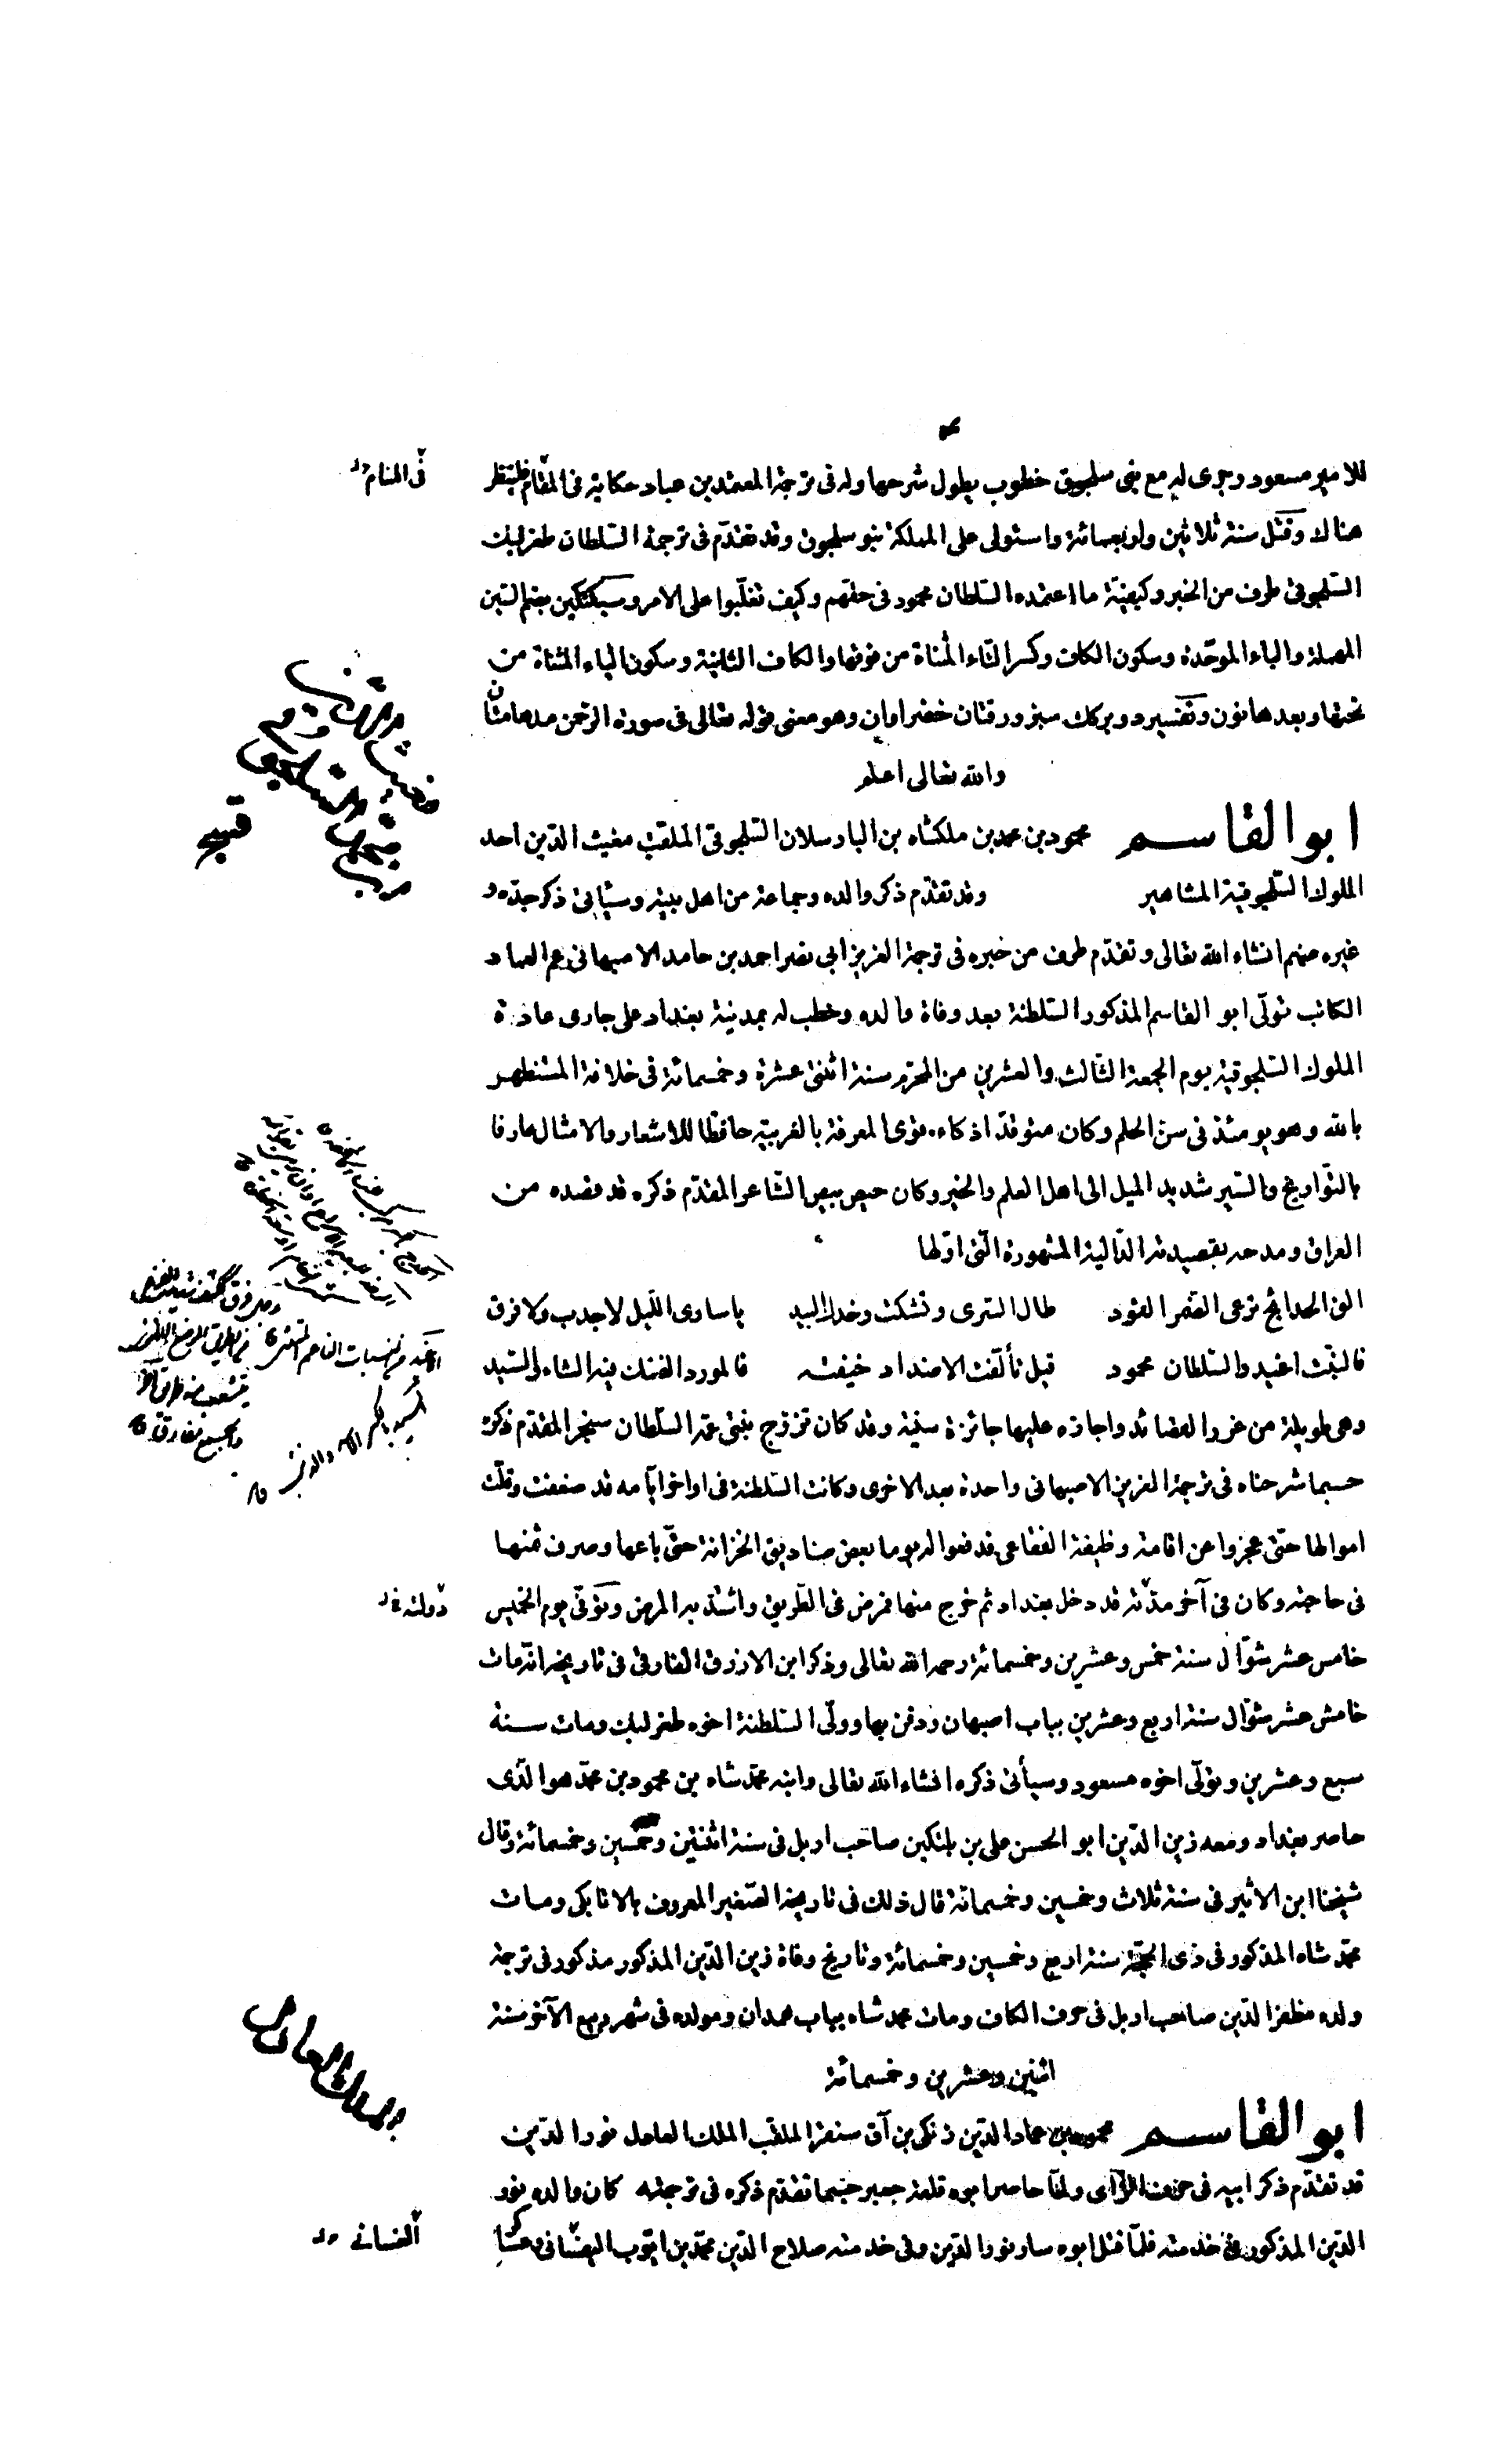 للامير مسعود وجرى له مع بني سلجوق خطوب يطول شرحها وله في ترجمة المعتمد بن عباد حكاية في المقام فلينظر
في المنام
هناك وقتل سنة ثلاثين واربعمائة واستولى على المملكة بنو سلجوق وقد تقدّم في ترجمة السّلطان طغرلبك
السّلجوقى طرف من الخبر وكيفيّة ما اعتمده السّلطان محمود في حقهم وكيف تغلّبوا على الامر وسبكتكين بضم السّين
المهملة والباء الموحّدة وسكون الكاف وكسر التاء المثناة من فوقها والكاف الثانية وسكون الياء المثناة من
تحتها وبعدها نون وتفسير دوبرك سبز ورقتان خضراوان وهو معنى قوله تعالى في سورة الرّحمن مدهامتان
والله تعالى اعلم
ابو القاسم محمود بن محمد بن ملكشاه بن الب ارسلان السّلجوقى الملقب مغيث الدّين احد
الملوك السّلجوقية المشاهير وقد تقدّم ذكر والده وجماعة من اهل بيته وسيأتى ذكر جدّه و
غيره منهم انشاء الله تعالى وتقدّم طرف من خبره في ترجمة العزيز ابي نصر احمد بن حامد الاصبهانى عم العماد
الكاتب تولّى ابو القاسم المذكور السّلطنة بعد وفاة والده وخطب له بمدينة بغداد على جارى عادة
الملوك السّلجوقية يوم الجمعة الثّالث والعشرين من المحرّم سنة اثنتى عشرة وخمسمائة في خلافة المستظهر
بالله وهو يومئذ في سنّ الحلم وكان متوقدّا ذكاء قوى المعرفة بالعربيّة حافظا للاشعار والامثال عارفا
بالتّواريخ والسّير شديد الميل الى اهل العلم والخير وكان حيص بيص الشّاعر المقدّم ذكره قد قصده من
العراق ومدحه بقصيدته الدّالية المشهورة الّتى اوّلها
الق الحدايج ترعى الضمر القود طال السّرى وتشكت وخدك البيد يا سارى اللّيل لا جدب ولا فرق
فالنّبت اغيد والسّلطان محمود قيل تألّفت الاضداد خيفته فالمورد الضنك فيه الشاء والسّيد
وهى طويلة من غرر القصائد واجازه عليها جائزة سنيّة وقد كان تزوّج بنتى عمّه السّلطان سنجر المقدّم ذكره
حسبما شرحناه في ترجمة العزيز الاصبهانى واحدة بعد الاخرى وكانت السّلطنة في اواخر ايّامه قد ضعفت وقلّت
اموالها حتّى عجزوا عن اقامة وظيفة الفقاعى فدفعوا له يوما بعض صناديق الخزانة حتّى باعها وصرف ثمنها
في حاجته وكان في آخر مدّته قد دخل بغداد ثم خرج منها فمرض في الطّريق واشتدّ به المرض وتوفّى يوم الخميس
دولته
خامس عشر شوّال سنة خمس وعشرين وخمسمائة رحمه الله تعالى وذكر ابن الازرق الفارقى في تاريخه انّه مات
خامس عشر شوّال سنة اربع وعشرين بباب اصبهان ودفن بها وولّى السّلطنة اخوه طغرلبك ومات سنة
سبع وعشرين وتولّى اخوه مسعود وسيأتى ذكره انشاء الله تعالى وابنه محمّد شاه بن محمود بن محمّد هو الّذى
حاصر بغداد ومعه زين الدّين ابو الحسن على بن بلتكين صاحب اربل في سنة اثنتين وخمسين وخمسمائة وقال
شيخنا ابن الاثير في سنة ثلاث وخمسين وخمسمائة قال ذلك في تاريخه الصّغير المعروف بالاتابكى ومات
محمّد شاه المذكور في ذى الحجّة سنة اربع وخمسين وخمسمائة وتاريخ وفاة زين الدّين المذكور مذكور في ترجمة
ولده مظفر الدّين صاحب اربل في حرف الكاف ومات محمد شاه بباب همدان ومولده في شهر ربيع الآخر سنة
اثنين وعشرين وخمسمائة
الملك العادل
ابو القاسم محمود بن عماد الدّين زنكى بن آق سنقر الملقب الملك العادل نور الدّين
قد تقدّم ذكر ابيه في حرف الزّاى ولمّا حاصر ابوه قلعة جعبر حسبما تقدّم ذكره في ترجمته كان والده نور
الدّين المذكور في خدمته فلمّا قتل ابوه سار نور الدّين وفى خدمته صلاح الدّين محمّد بن ايّوب اليغسّانى وعساكر
الغسانى